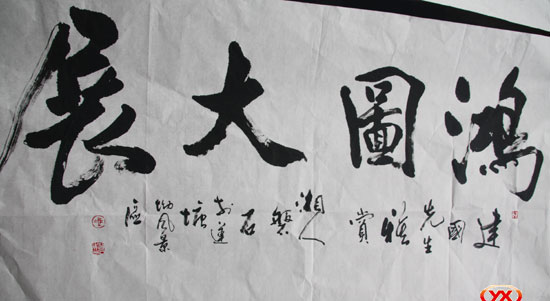 鴻圖大展
建國先生雅賞
湘人磐石
風景區
YX